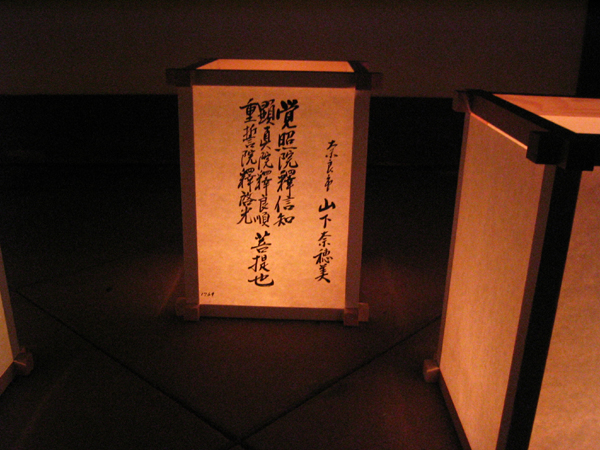 奈良市 山下奈穂美
覚照院釋信知
顕真院釋良順 菩提也
重誓院釋啓光
1729